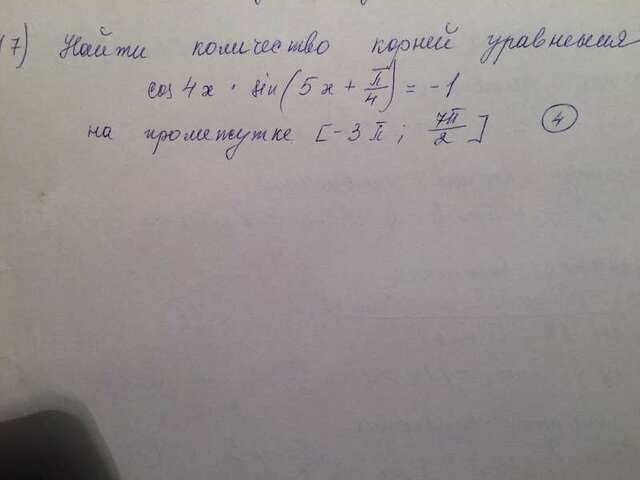 17) Найти количество корней уравнения
cos 4x · sin(5x + π/4) = -1
на промежутке [-3π; 7π/2]
4